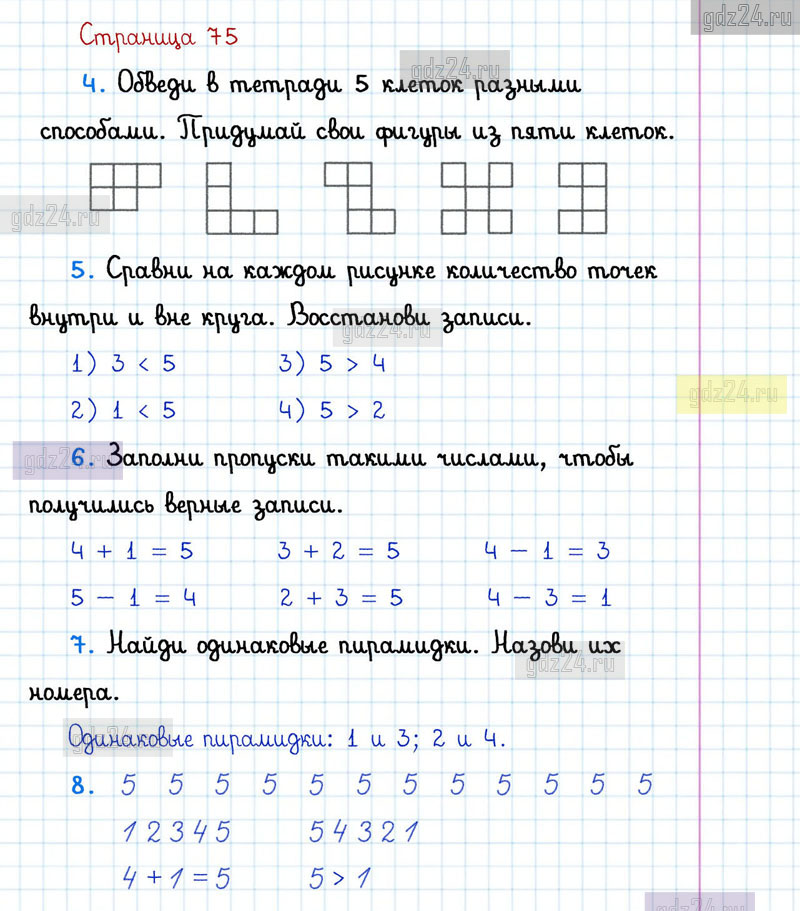 gdz24.ru
Страница 75
gdz24.ru
4. Обведи в тетради 5 клеток разными
способами. Придумай свои фигуры из пяти клеток.
gdz24.ru
5. Сравни на каждом рисунке количество точек
внутри и вне круга. Восстанови записи.
gdz24.ru
1) 3 < 5 3) 5 > 4
gdz24.ru
2) 1 < 5 4) 5 > 2
gdz24.ru
6. Заполни пропуски такими числами, чтобы
получились верные записи.
4 + 1 = 5 3 + 2 = 5 4 - 1 = 3
5 - 1 = 4 2 + 3 = 5 4 - 3 = 1
7. Найди одинаковые пирамидки. Назови их
gdz24.ru
номера.
gdz24.ru
Одинаковые пирамидки: 1 и 3; 2 и 4.
8. 5 5 5 5 5 5 5 5 5 5 5 5
1 2 3 4 5 5 4 3 2 1
4 + 1 = 5 5 > 1
gdz24.ru